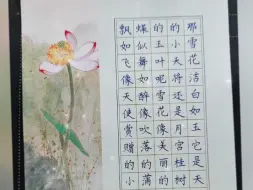 那雪花洁白如玉它是天
的小天将还是月宫桂树
的玉叶呢雪花像美丽的
蝶似舞如醉像吹落的满
飘如飞像天使赏赠的小